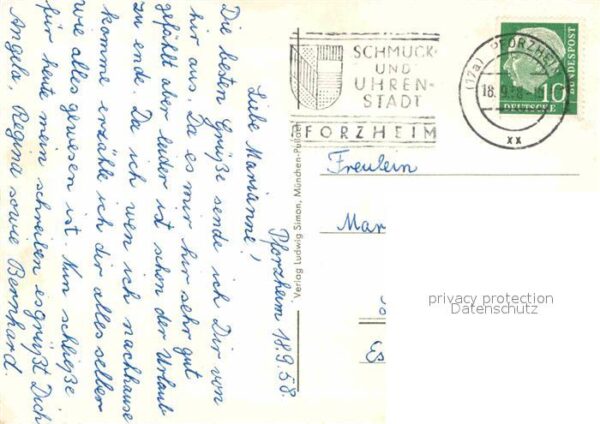 Pforzheim 18.9.58.
Liebe Marianne!
Die besten Grüße sende ich Dir von
hir aus. Da es mir hir sehr gut
gefählt aber leider ist schon der Urlaub
zu ende. Da ich wen ich nachhause
komme erzähle ich dir alles selber
wie alles gewesen ist. Nun schließe
für heute mein schreiben es grüßt Dich
Angela, Regina sowie Bernhard.
Verlag Ludwig Simon, München-Pullach
SCHMUCK-
UND
UHREN-
STADT
PFORZHEIM
(17a) PFORZHEIM
18.9.58
xx
10
DEUTSCHE
BUNDESPOST
Freulein
Mar
Es
privacy protection
Datenschutz